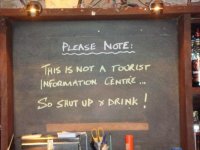 PLEASE NOTE:
THIS IS NOT A TOURIST
INFORMATION CENTRE...
SO SHUT UP & DRINK!